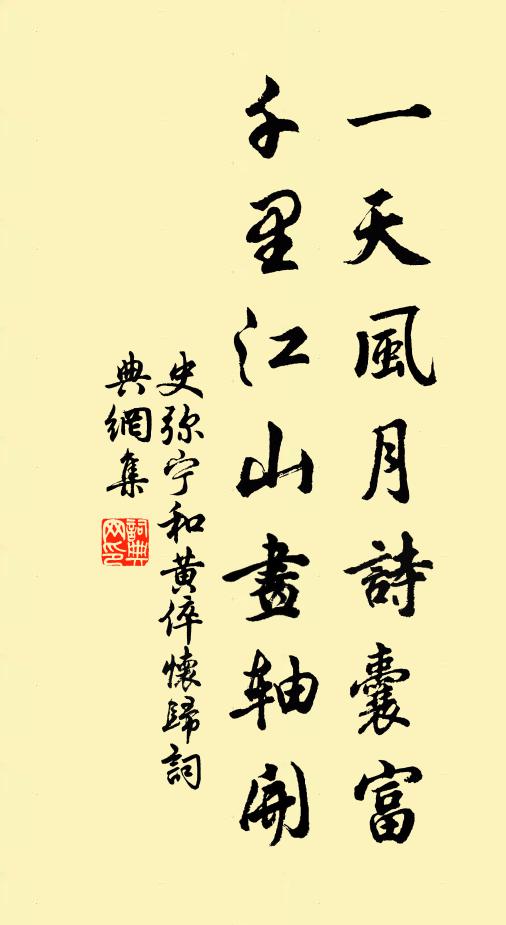 一天風月詩囊富
千里江山畫軸開
史弥宁和黄倅懷歸詞
典網集
詞典网印